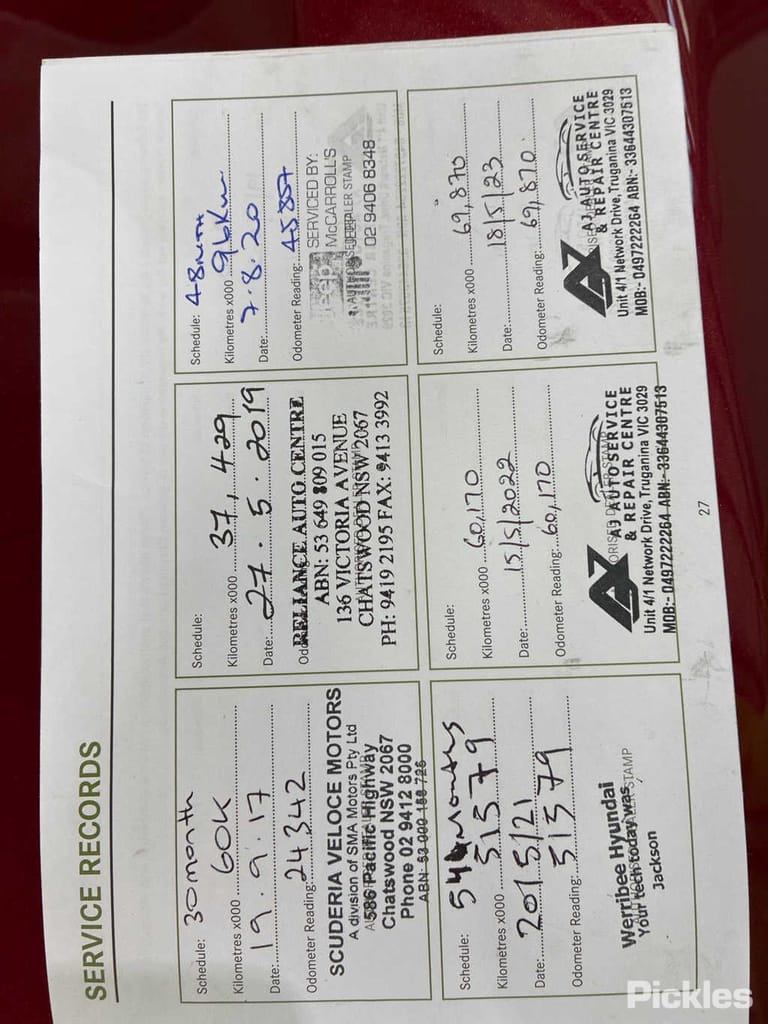 SERVICE RECORDS
Schedule: 30 month
Kilometres x000 60K
Date: 19.9.17
Odometer Reading: 24342
SCUDERIA VELOCE MOTORS
A division of SMA Motors Pty Ltd
586 Pacific Highway
Chatswood NSW 2067
Phone 02 9412 8000
ABN: 53 000 158 725
Schedule:
Kilometres x000 37,429
Date: 27.5.2019
RELIANCE AUTO CENTRE
ABN: 53 649 809 015
136 VICTORIA AVENUE
CHATSWOOD NSW 2067
PH: 9419 2195 FAX: 9413 3992
Schedule: 48 MTH
Kilometres x000 96Km
Date: 7.8.20
Odometer Reading: 45857
Jeep
SERVICED BY:
McCARROLL'S
DEALER STAMP
02 9406 8348
Schedule: 54 Months
Kilometres x000 51579
Date: 2015/21
Odometer Reading: 51579
Werribee Hyundai
Your tech today was
STAMP
Jackson
Schedule:
Kilometres x000 60,170
Date: 15/5/2022
Odometer Reading: 60,170
AJ AUTO SERVICE
& REPAIR CENTRE
Unit 4/1 Network Drive, Truganina VIC 3029
MOB:- 0497222264 ABN:- 33644307513
Schedule:
Kilometres x000 69,870
Date: 18/5/23
Odometer Reading: 69,870
AJ AUTO SERVICE
& REPAIR CENTRE
Unit 4/1 Network Drive, Truganina VIC 3029
MOB:- 0497222264 ABN:- 33644307513
27
Pickles